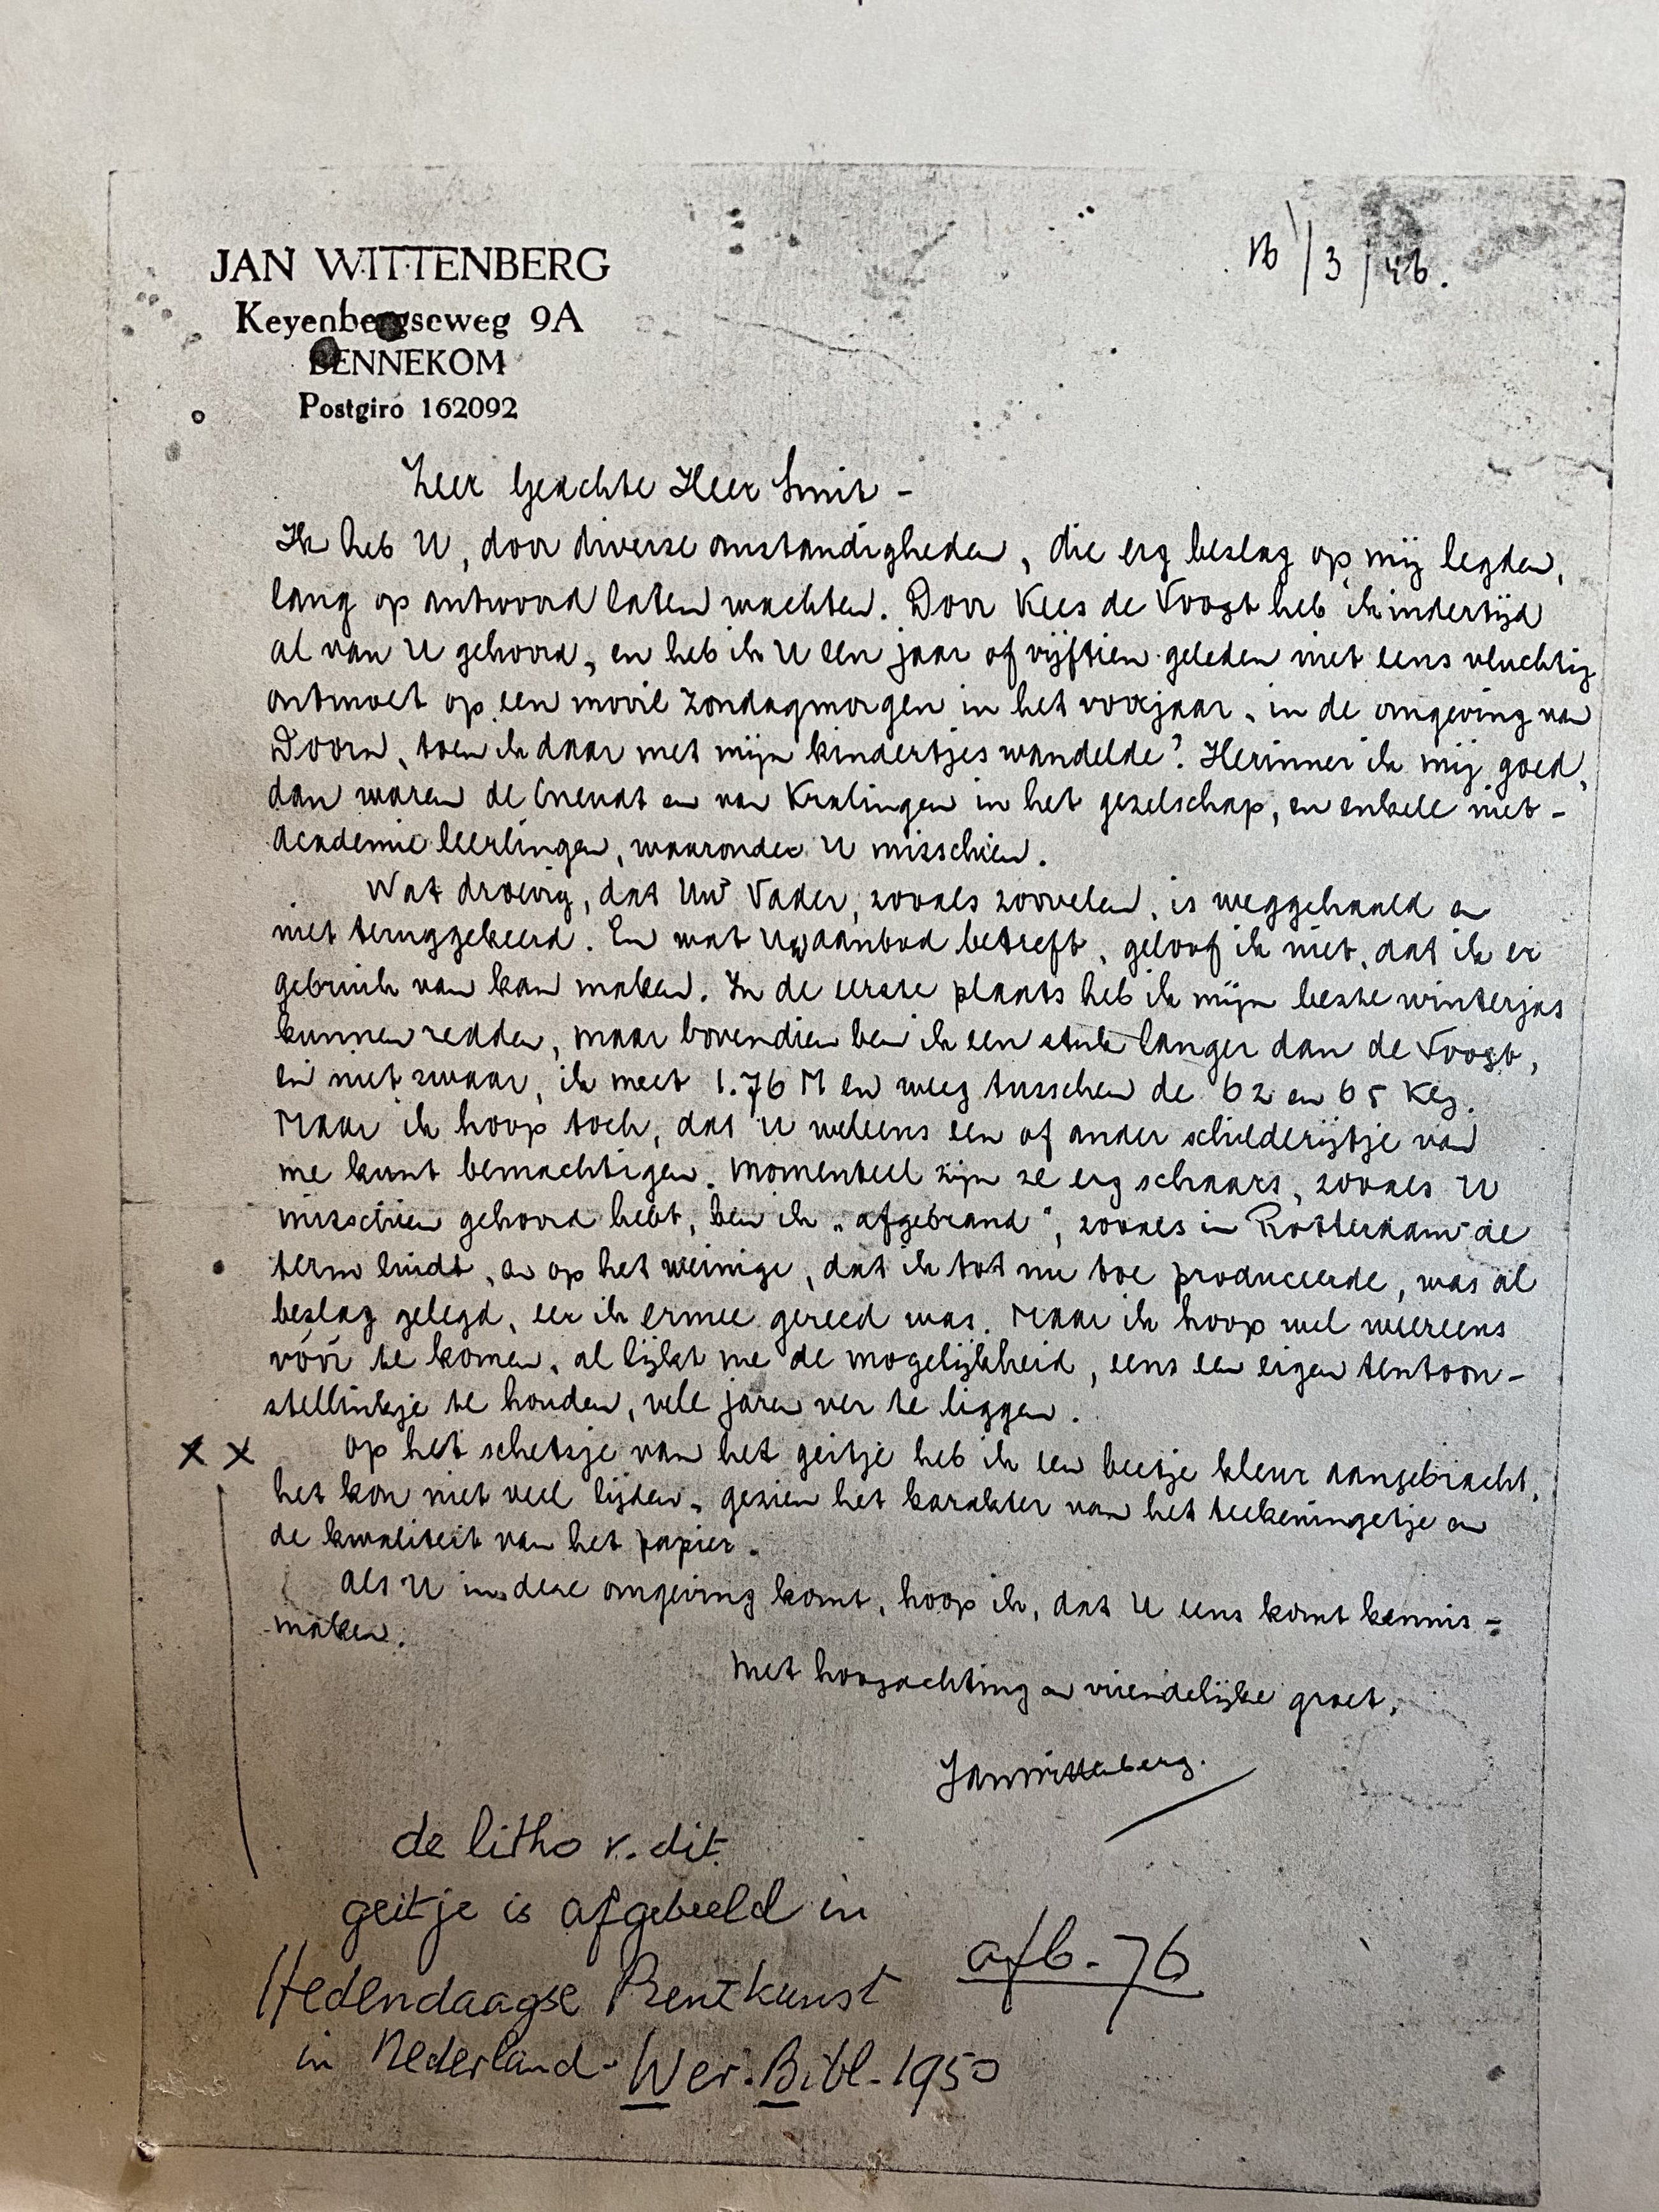 JAN WITTENBERG
Keyenbergseweg 9A
BENNEKOM
Postgiro 162092
16/3/46.
Zeer Geachte Heer Smit -
Ik heb U, door diverse omstandigheden, die erg beslag op mij legden,
lang op antwoord laten wachten. Door Kees de Voogt heb ik indertijd
al van U gehoord, en heb ik U een jaar of vijftien geleden niet eens vluchtig
ontmoet op een mooie Zondagmorgen in het voorjaar, in de omgeving van
Doorn, toen ik daar met mijn kindertjes wandelde? Herinner ik mij goed,
dan waren de en van Kralingen in het gezelschap, en enkele niet-
Academie leerlingen, waaronder U misschien.
Wat droevig, dat Uw Vader, zooals zoovelen, is weggehaald en
niet teruggekeerd. En wat Uw aanbod betreft, geloof ik niet, dat ik er
gebruik van kan maken. In de eerste plaats heb ik mijn beste winterjas
kunnen redden, maar bovendien ben ik een stuk langer dan de Voogt,
en niet zwaar, ik meet 1.76 M en weeg tusschen de 62 en 65 Kg.
Maar ik hoop toch, dat U weleens een of ander schilderijtje van
me kunt bemachtigen. Momenteel zijn ze erg schaars, zooals U
misschien gehoord hebt, ben ik „afgebrand", zooals in Rotterdam de
term luidt, en op het weinige, dat ik tot nu toe produceerde, was al
beslag gelegd, eer ik ermee gereed was. Maar ik hoop wel weereens
vóór te komen, al lijkt me de mogelijkheid, eens een eigen tentoon-
stellinkje te houden, vele jaren ver te liggen.
X X Op het schetsje van het geitje heb ik een beetje kleur aangebracht,
het kon niet veel lijden, gezien het karakter van het teekeningetje en
de kwaliteit van het papier.
Als U in deze omgeving komt, hoop ik, dat U eens komt kennis-
maken.
Met hoogachting en vriendelijke groet,
Jan Wittenberg.
de litho v. dit
geitje is afgebeeld in
Hedendaagse Prentkunst
afb-76
in Nederland - Wer. Bibl - 1950